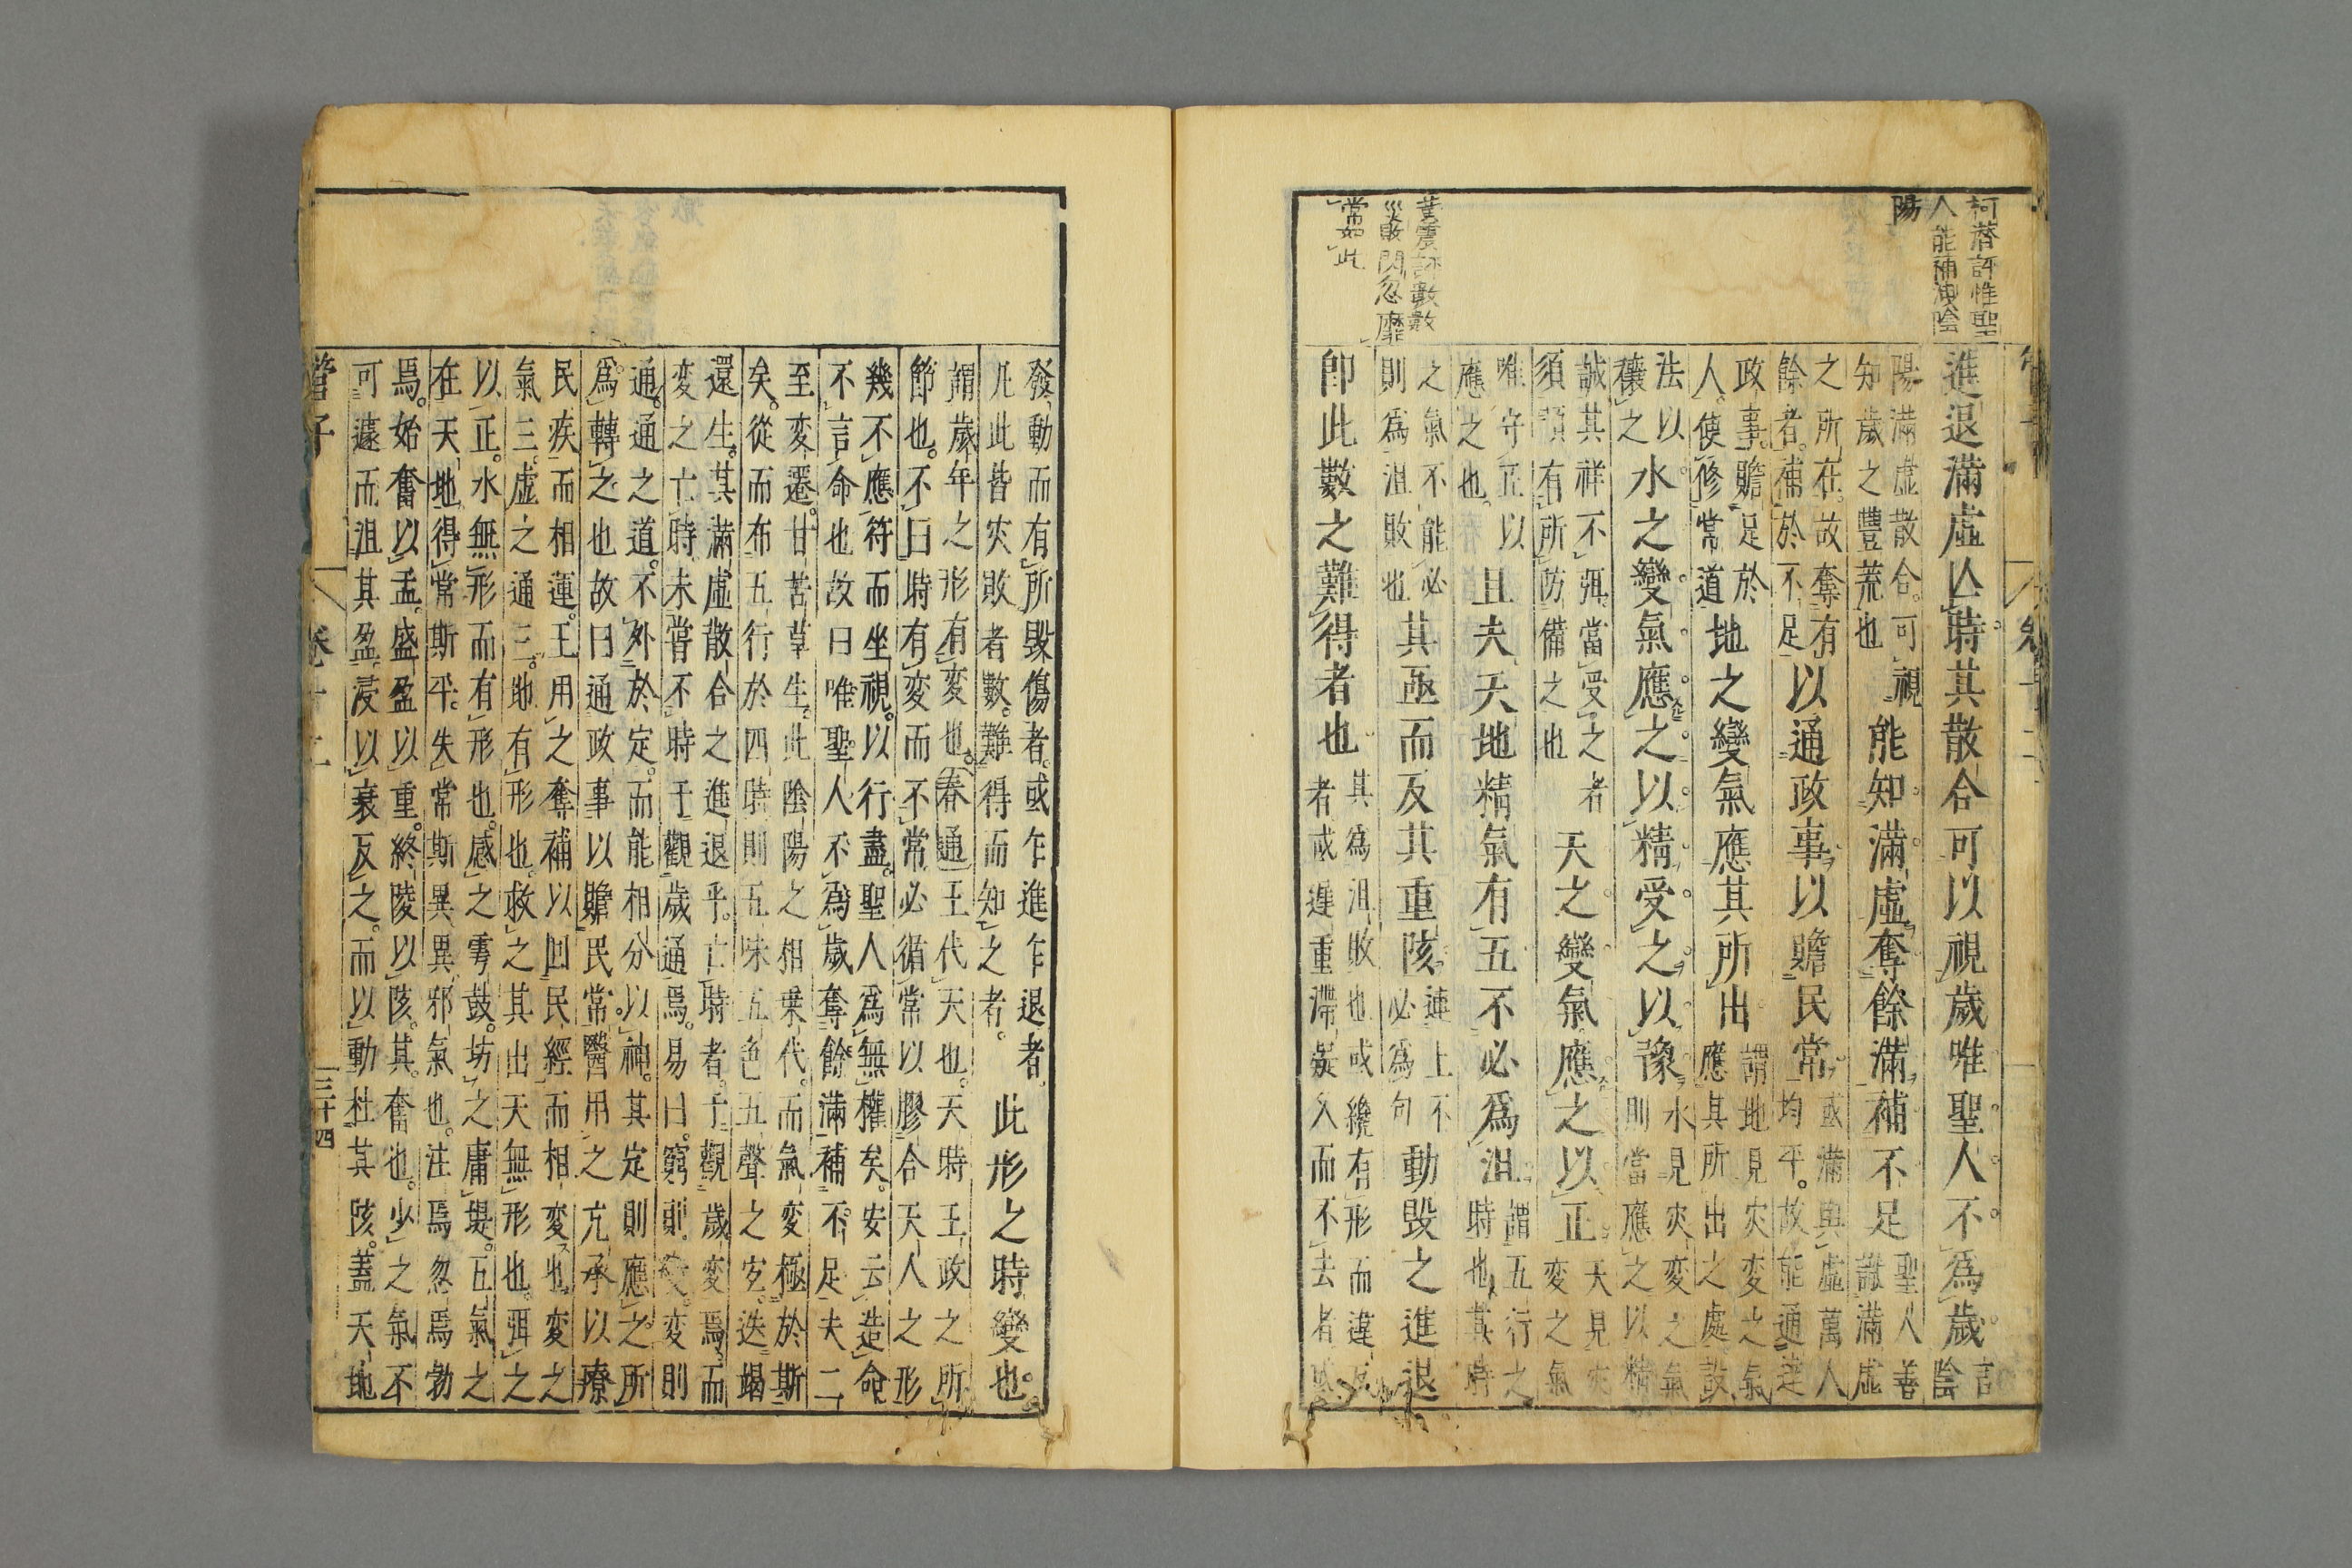 柯潜評惟聖
人能補洩陰
陽
進退滿虛亾時其散合可以視歲唯聖人不爲歲言陰
陽滿虛散合可視知歲之豐荒也能知滿虛奪餘滿補不足聖人善識滿虛
之所在故奪有餘者補於不足以通政事以贍民常或滿與虛萬人均平故能通達
政事贍足於人使修常道地之變氣應其所出謂地見灾变之氣應其所出之處設
法以穰之水之變氣應之以精受之以豫水見灾变之氣則當應之以精
誠其祥不弭當受之者須預有所防備之也天之變氣應之以正天見灾变之氣
唯守正以應之也且夫天地精氣有五不必爲沮謂五行之時也其時
之氣不能必則爲沮敗也其亟而反其重陔連上不必爲句動毀之進退
即此數之難得者也其爲沮敗也或纔有形而違者或遲重滯凝入而不去者
葉震評數數
災敗閃忽靡
常如此
發動而有所毀傷者或乍進乍退者此形之時變也
凡此皆灾敗者數難得而知之者
謂歲年之形有变也春通王代天也天時王政之所
節也不曰時有变而不常必循常以膠合天人之形
幾不應符而坐視以行盡聖人爲無權矣安云造命
不言命也故曰唯聖人不爲歲奪餘滿補不足夫二
至变遷甘苦草生此陰陽之相乗代而氣变極於斯
矣從而布五行於四時則五味五色五聲之变迭竭
還生其滿虛散合之進退乎亡時者于觀歲变焉而
变之亡時未嘗不時于觀歲通焉易曰窮則变变則
通通之道不外於定而能相分以神其定則應之所
爲轉之也故曰通政事以贍民常醫用之亢承以療
民疾而相運王用之奪補以回民經而相变也变之
氣三虛之通三地有形也救之其出天無形也弭之
以正水無形而有形也感之雩鼓坊之庸堤五氣之
在天地得常斯平失常斯異異邪氣也注焉忽焉勃
焉始奮以孟盛盈以重終陵以陔其奮也少之氣不
可遽而沮其盈浸以衰反之而以動杜其陔蓋天地
管子
卷十二
三十四